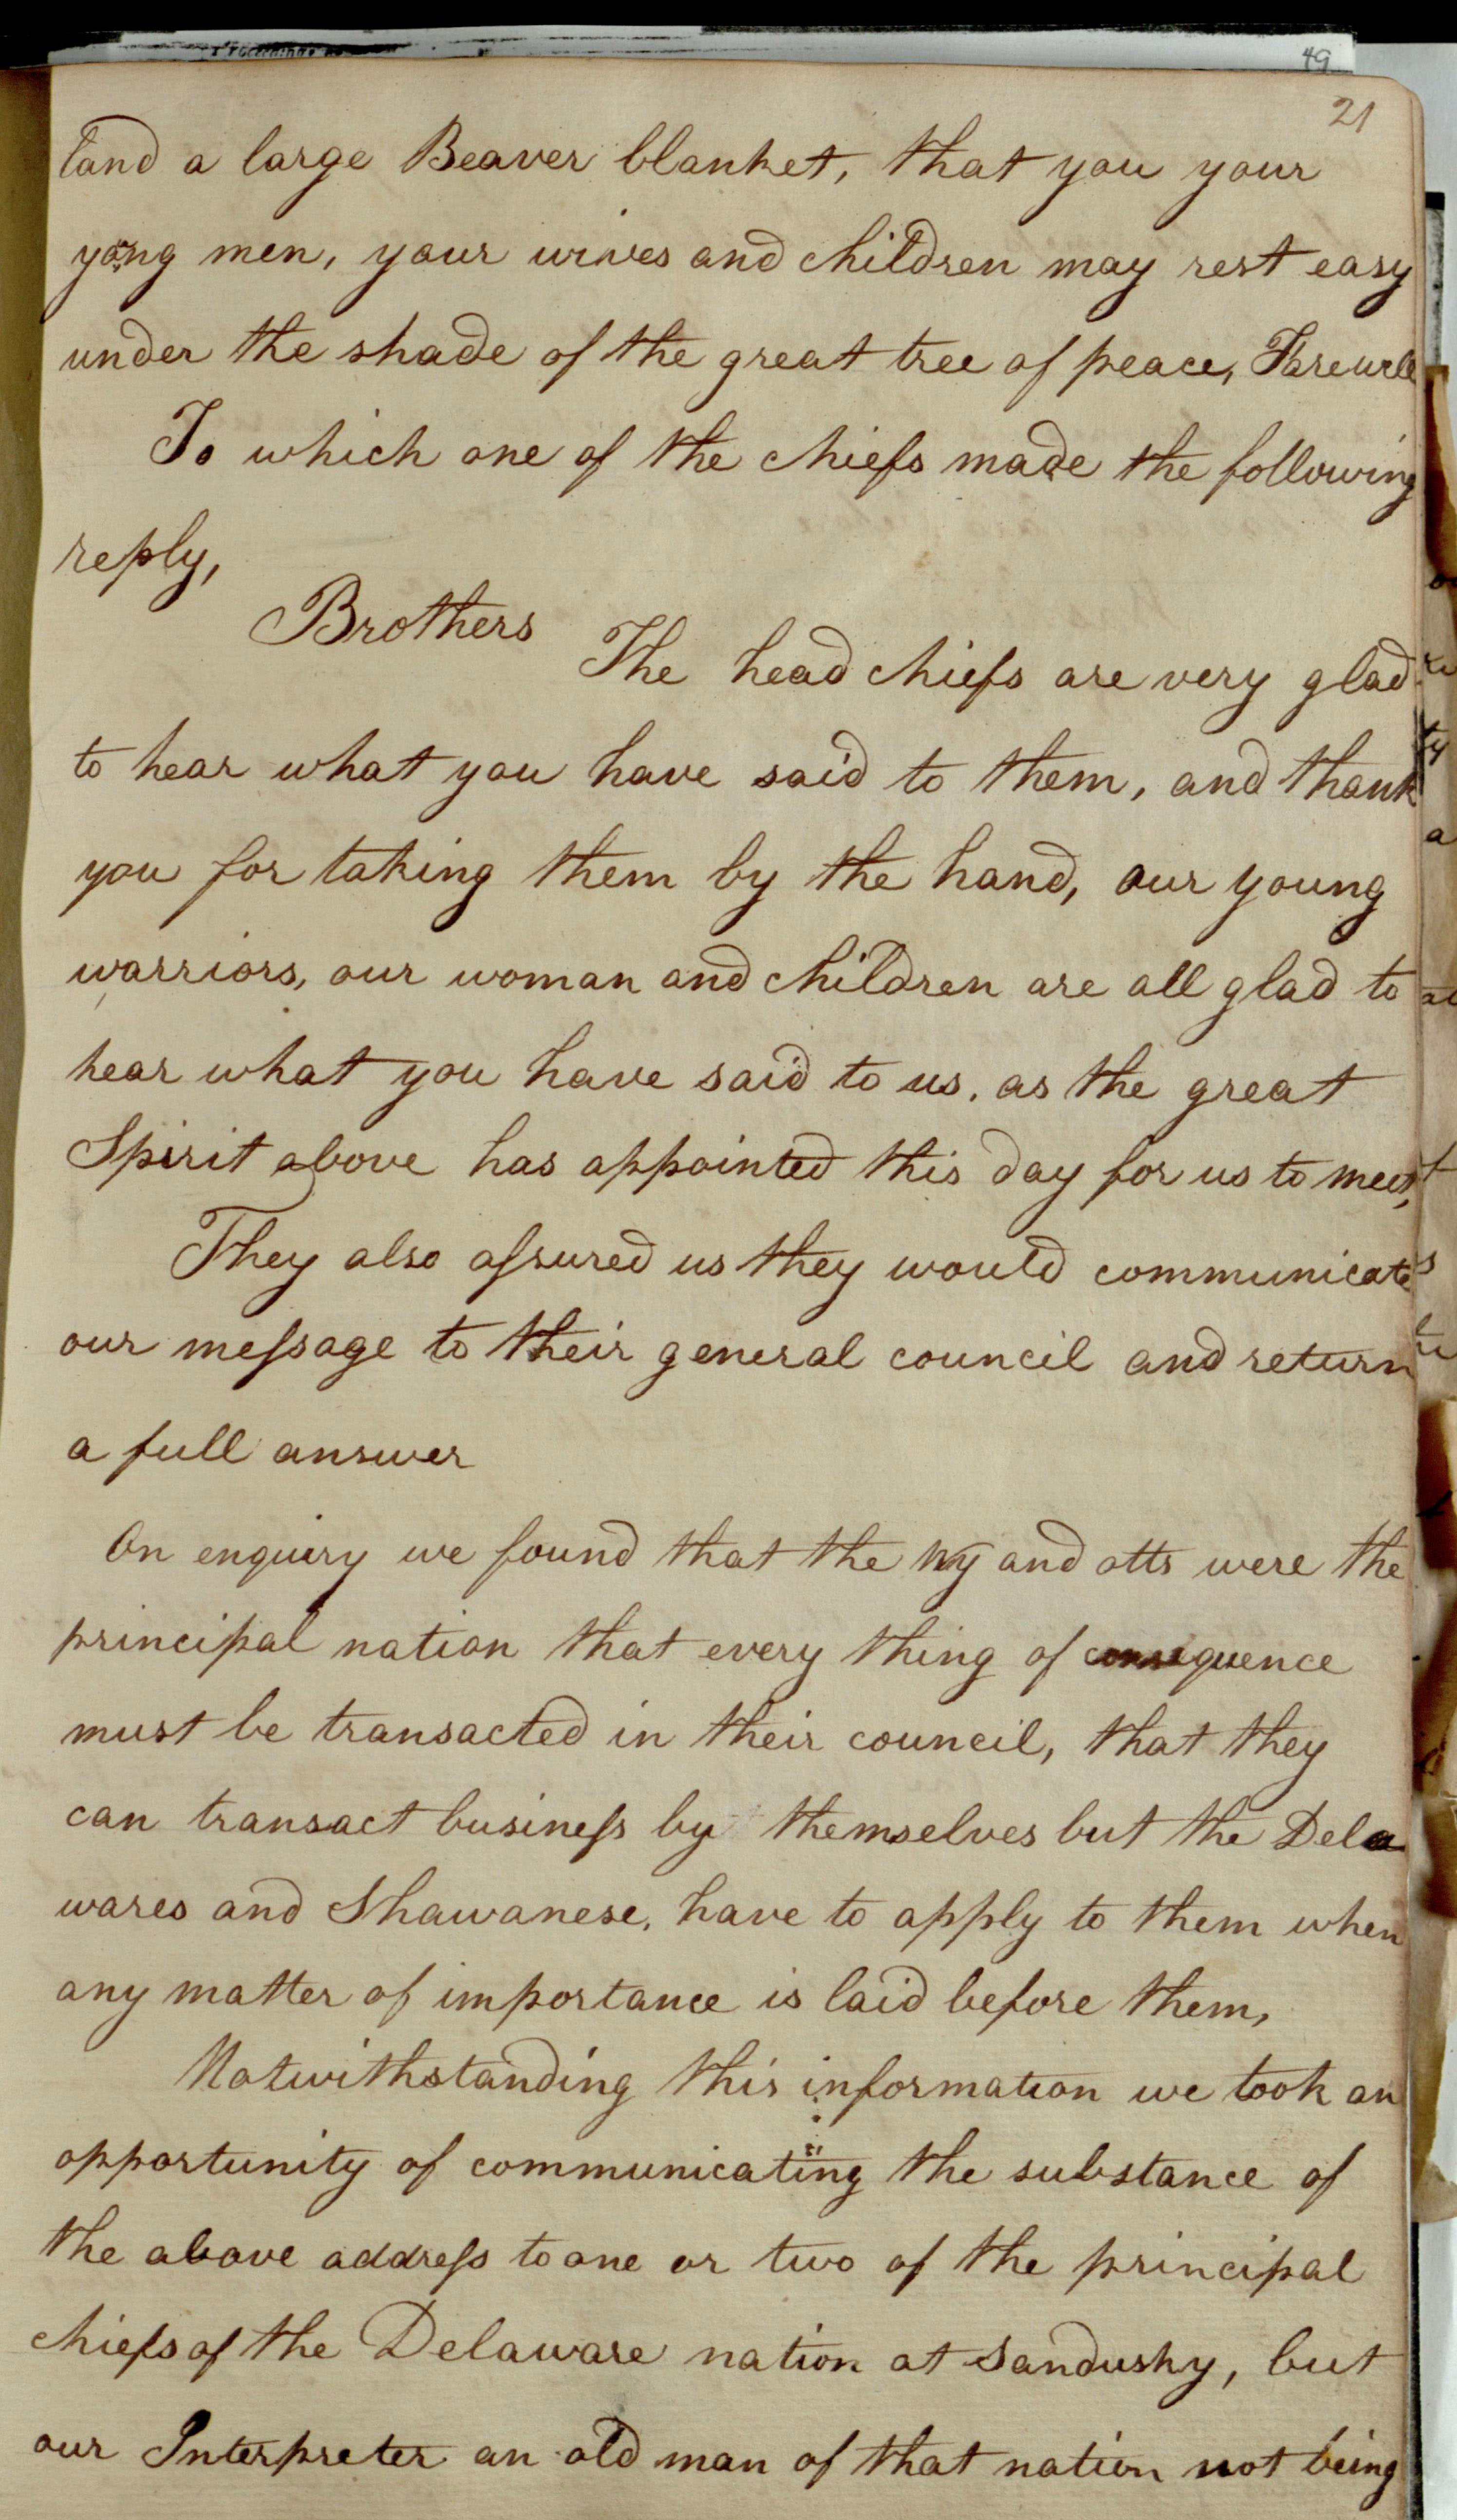 49
21
land a large Beaver blanket, that you your
yong men, your wives and children may rest easy
under the shade of the great tree of peace, Farewell
To which one of the chiefs made the following
reply,
Brothers The head chiefs are very glad
to hear what you have said to them, and thank
you for taking them by the hand, our young
warriors, our woman and children are all glad to
hear what you have said to us, as the great
Spirit above has appointed this day for us to meet,
They also assured us they would communicate
our message to their general council and return
a full answer
On enquiry we found that the Wy and otts were the
principal nation that every thing of consequence
must be transacted in their council, that they
can transact business by themselves but the Dela
wares and Shawanese, have to apply to them when
any matter of importance is laid before them,
Notwithstanding this information we took an
opportunity of communicating the substance of
the above address to one or two of the principal
chiefs of the Delaware nation at Sandusky, but
our Interpreter an old man of that nation not being